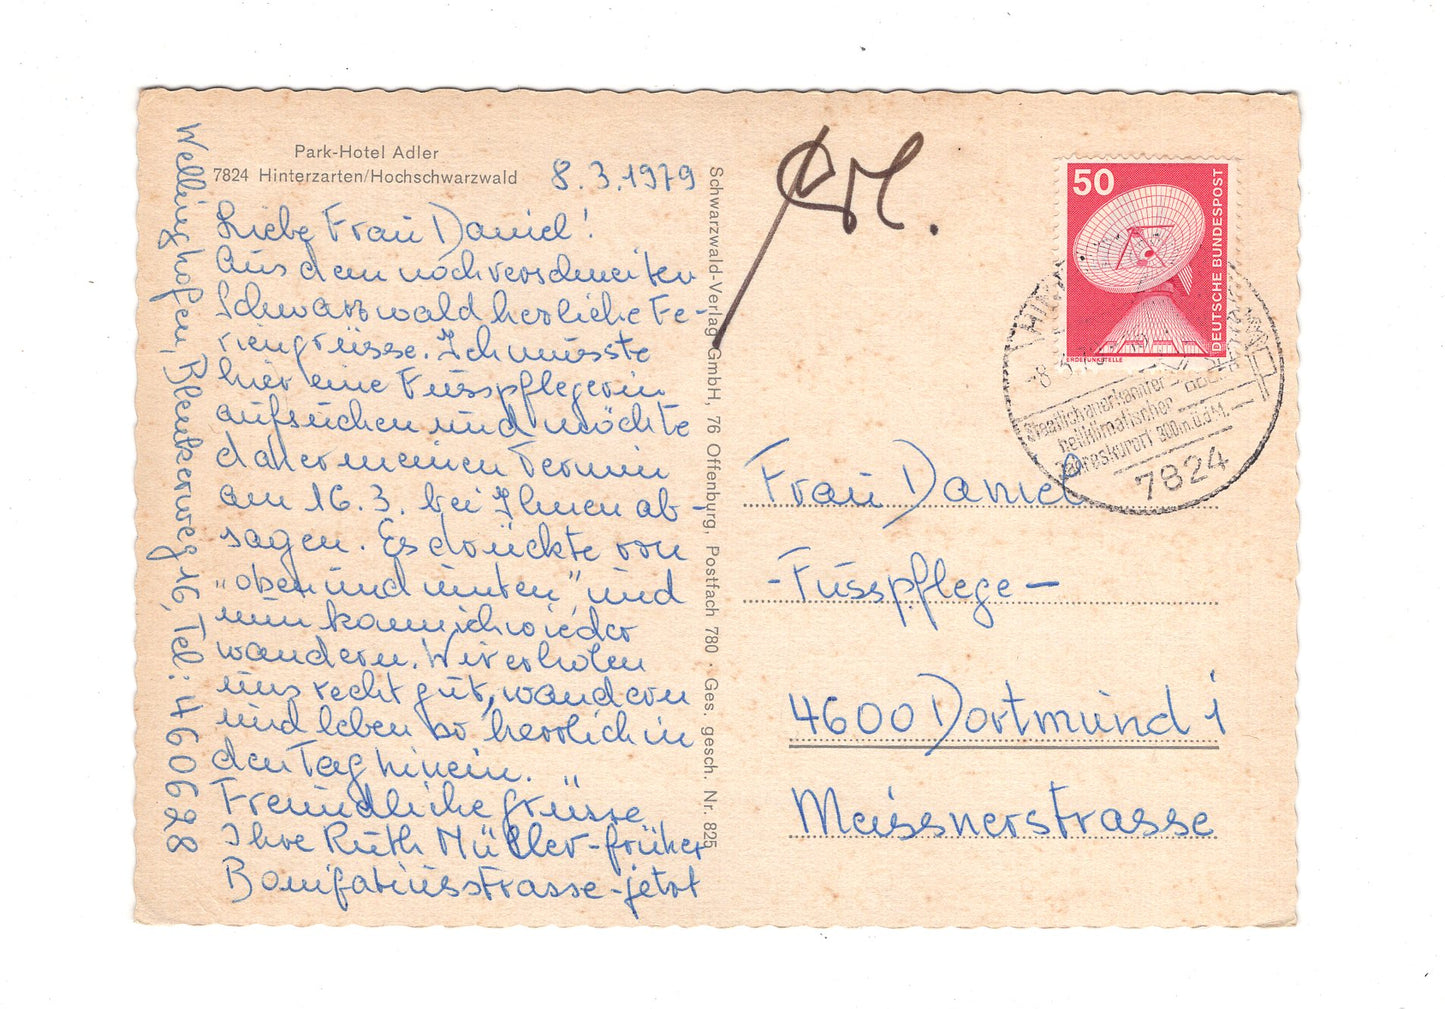 Park-Hotel Adler
7824 Hinterzarten/Hochschwarzwald
8.3.1979
Liebe Frau Daniel!
Aus dem noch verschneiten
Schwarzwald herzliche Fe-
riengrüsse. Ich musste
hier eine Fusspflegerin
aufsuchen und möchte
daher meinen Termin
am 16.3. bei Ihnen ab-
sagen. Es drückte von
„oben und unten" und
nun kann ich wieder
wandern. Wir erholen
uns recht gut, wandern
und leben so herrlich in
den Tag hinein.
Freundliche Grüsse
Ihre Ruth Müller-früher
Bonifatiusstrasse-jetzt
Wellinghofen, Blenkerweg 16, Tel: 460628
Schwarzwald-Verlag GmbH, 76 Offenburg, Postfach 780 · Ges. gesch. Nr. 825
50
DEUTSCHE BUNDESPOST
ERDEFUNKSTELLE
Staatlich anerkannter
heilklimatischer
Jahreskurort 900m.ü.d.M.
7824
Frau Daniel
-Fusspflege-
4600 Dortmund 1
Meissnerstrasse